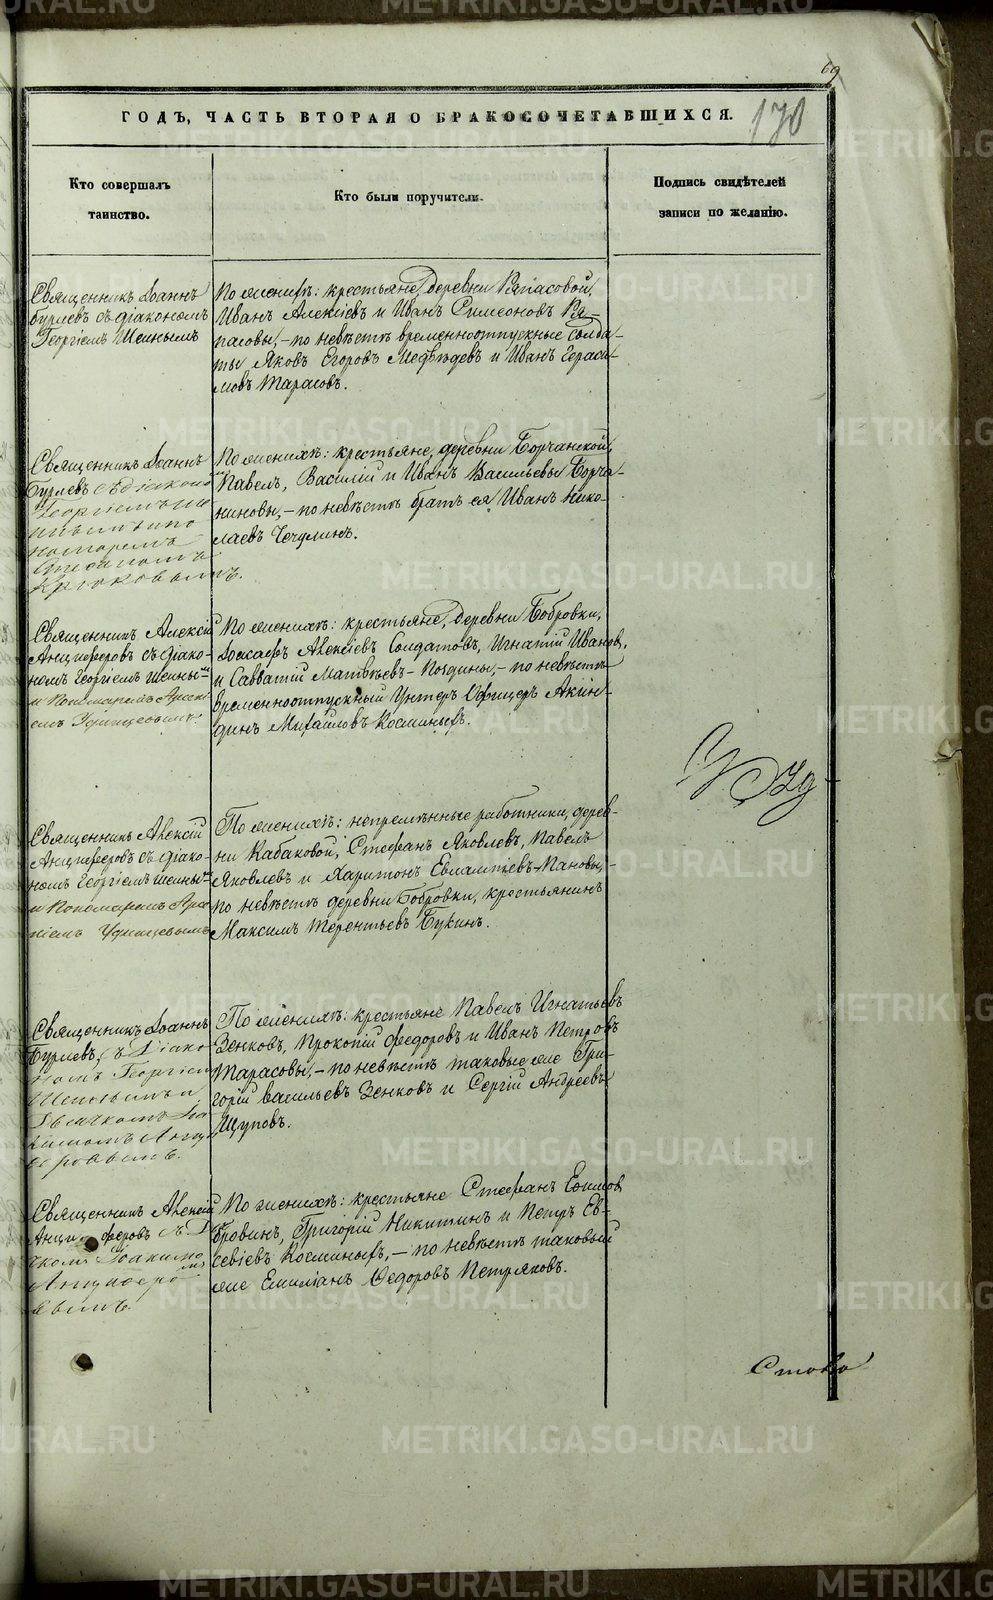 69
ГОДЪ, ЧАСТЬ ВТОРАЯ О БРАКОСОЧЕТАВШИХСЯ.
170
Кто совершалъ
таинство.
Кто были поручители.
Подпись свидѣтелей
записи по желанію.
Священникъ Іоаннъ
Бурлевъ съ діакономъ
Георгіемъ
По женихѣ: крестьяне, деревни
Иванъ Алексіевъ и Иванъ Симеоновъ
– по невѣстѣ временноотпускные солда-
ты Яковъ Егоровъ Медвѣдевъ и Иванъ Гераси-
мовъ Тарасовъ.
Священникъ Іоаннъ
Бурлевъ съ діакономъ
Георгіемъ
и по
номаремъ
Крюковымъ.
По женихѣ: крестьяне, деревни Борчанской,
Павелъ, Василій и Иванъ Васильевы Борча-
ниновы, – по невѣстѣ братъ ея Иванъ Нико-
лаевъ
Священникъ Алексій
Анциферовъ съ діако-
номъ Георгіемъ
и Пономаремъ
По женихѣ: крестьяне, деревни Бобровки,
Іоасафъ Алексіевъ Солдатовъ, Игнатій Ивановъ,
и Савватій Матвѣевъ – по невѣстѣ
временноотпускный Унтеръ Офицеръ Акин-
динъ Михайловъ Косминыхъ.
Священникъ Алексій
Анциферовъ съ діако-
номъ Георгіемъ
и Пономаремъ
По женихѣ: непремѣнные работники, дерев-
ни Кабаковой, Стефанъ Яковлевъ, Павелъ
Яковлевъ и Харитонъ Евлампіевъ Пановы,
по невѣстѣ деревни Бобровки, крестьянинъ
Максимъ Терентьевъ Букинъ.
Священникъ Іоаннъ
Бурлевъ, съ Діако-
номъ Георгіем
и
Дьячкомъ Іоа
кимомъ Анци
феровымъ.
По женихѣ: крестьяне Павелъ Игнатьевъ
Зенковъ, Прокопій Федоровъ и Иванъ Петровъ
Тарасовы, – по невѣстѣ таковые же Гри-
горій Васильевъ Зенковъ и Сергій Андреевъ
Щуповъ.
Священникъ Алексій
Анциферовъ съ Дья
чкомъ Іоакимо
мъ
Анциферо
вымъ.
По женихѣ: крестьяне Стефанъ Ефимовъ
Бровинъ, Григорій Никитинъ и Петръ Ев-
севіевъ Косминыхъ, – по невѣстѣ таковый
же Емиліанъ Федоровъ Петряковъ.
METRIKI.GASO-URAL.RU